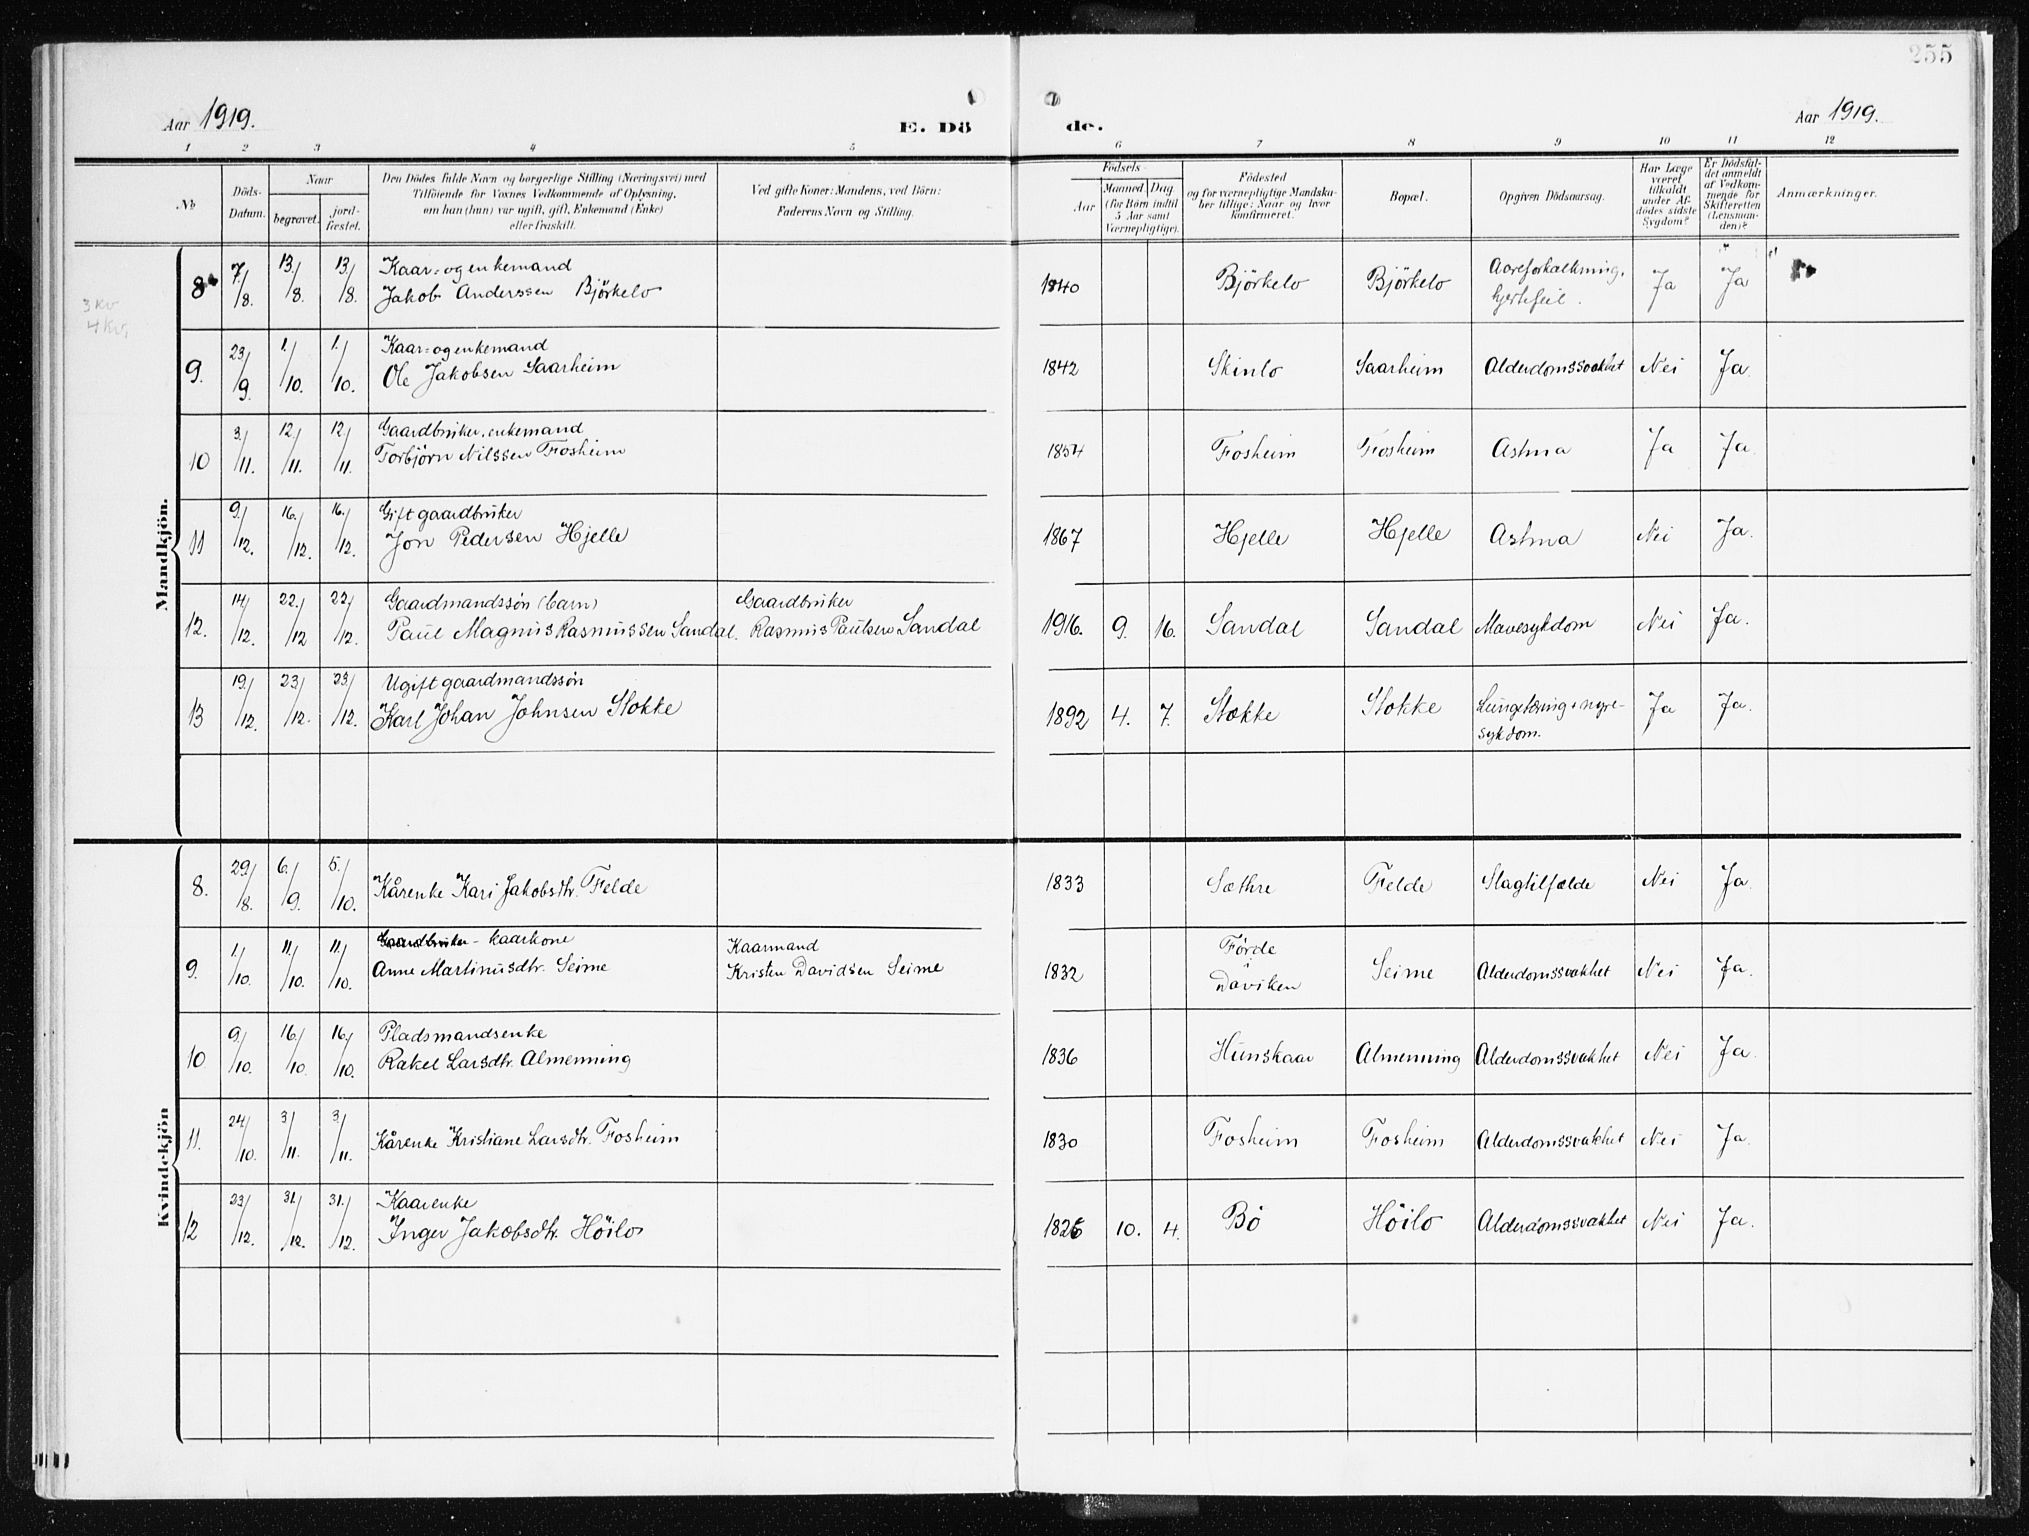 255
Aar 1919.
E. Dö
de.
Aar 1919.
1 2 3 4 5 6 7 8 9 10 11 12
No
Döds-
Datum.
Naar
begravet.
jord-
fæstet.
Den Dödes fulde Navn og borgerlige Stilling (Næringsvei) med
Tilföiende for Voxnes Vedkommende af Oplysning,
om han (hun) var ugift, gift, Enkemand (Enke)
eller fraskilt.
Ved gifte Koner: Mandens, ved Börn:
Faderens Navn og Stilling.
Födsels-
Aar
Maaned
(for Börn indtil
5 Aar samt
Værnepligtige).
Dag
Födested
og for værnepligtige Mandska-
ber tillige: Naar og hvor
konfirmeret.
Bopæl.
Opgiven Dödsaarsag.
Har Læge
været
tilkaldt
under Af-
dödes sidste
Sygdom?
Er Dödsfal-
det anmeldt
af Vedkom-
mende for
Skifteretten
(Lensman-
den)?
Anmærkninger.
3 kv
4 kv,
Mandkjön.
8 7/8. 13./8. 13/8. Kaar- og enkemand
Jakob Anderssen Björkelo 1840 Björkelo Björkelo Aareforkalkning,
hjertefeil. Ja Ja
9. 23/9. 1./10. 1./10. Kaar- og enkemand
Ole Jakobsen Saarheim 1842 Skinlo Saarheim Alderdomssvakhet Nei Ja.
10 3./11. 12./11. 12./11. Gaardbruker, enkemand
Torbjörn Nilssen Fosheim 1854 Fosheim Fosheim Astma Ja Ja.
11 9./12. 16./12. 16./12. Gift gaardbruker
Jon Pedersen Hjelle 1867 Hjelle Hjelle Astma Nei Ja.
12. 14/12. 22./12 22/12. Gaardmandssön (barn)
Paul Magnus Rasmussen Sandal. Gaardbruker
Rasmus Paulsen Sandal 1916. 9. 16. Sandal Sandal Mavesykdom Nei Ja.
13 19./12. 23/12. 23./12. Ugift gaardmandssön
Karl Johan Johnsen Stokke 1892 4. 7. Stokke Stokke Lungetæring + nyre-
sykdom. Ja Ja.
Kvindekjön
8. 29/8. 6./9. 5./10. Kårenke Kari Jakobsdtr. Felde 1833 Sæthre Felde Slagtilfælde Nei Ja.
9. 1./10. 11./10. 11./10. Gaardbruker - kaarkone
Anne Martinusdtr. Seime Kaarmand
Kristen Davidsen Seime 1832 Förde
i
Daviken Seime Alderdomssvakhet Nei Ja.
10 9/10. 16./10. 16./10. Pladsmandsenke
Rakel Larsdtr. Almenning 1836 Hunskaar Almenning Alderdomssvakhet Nei Ja.
11. 24/10. 3/11. 3./11. Kårenke Kristiane Larsdtr. Fosheim 1830 Fosheim Fosheim Alderdomssvakhet Nei Ja.
12 23/12. 31./12. 31./12. Kaarenke
Inger Jakobsdtr. Höilo 1826 10. 4. Bö Höilo Alderdomssvakhet Nei Ja.